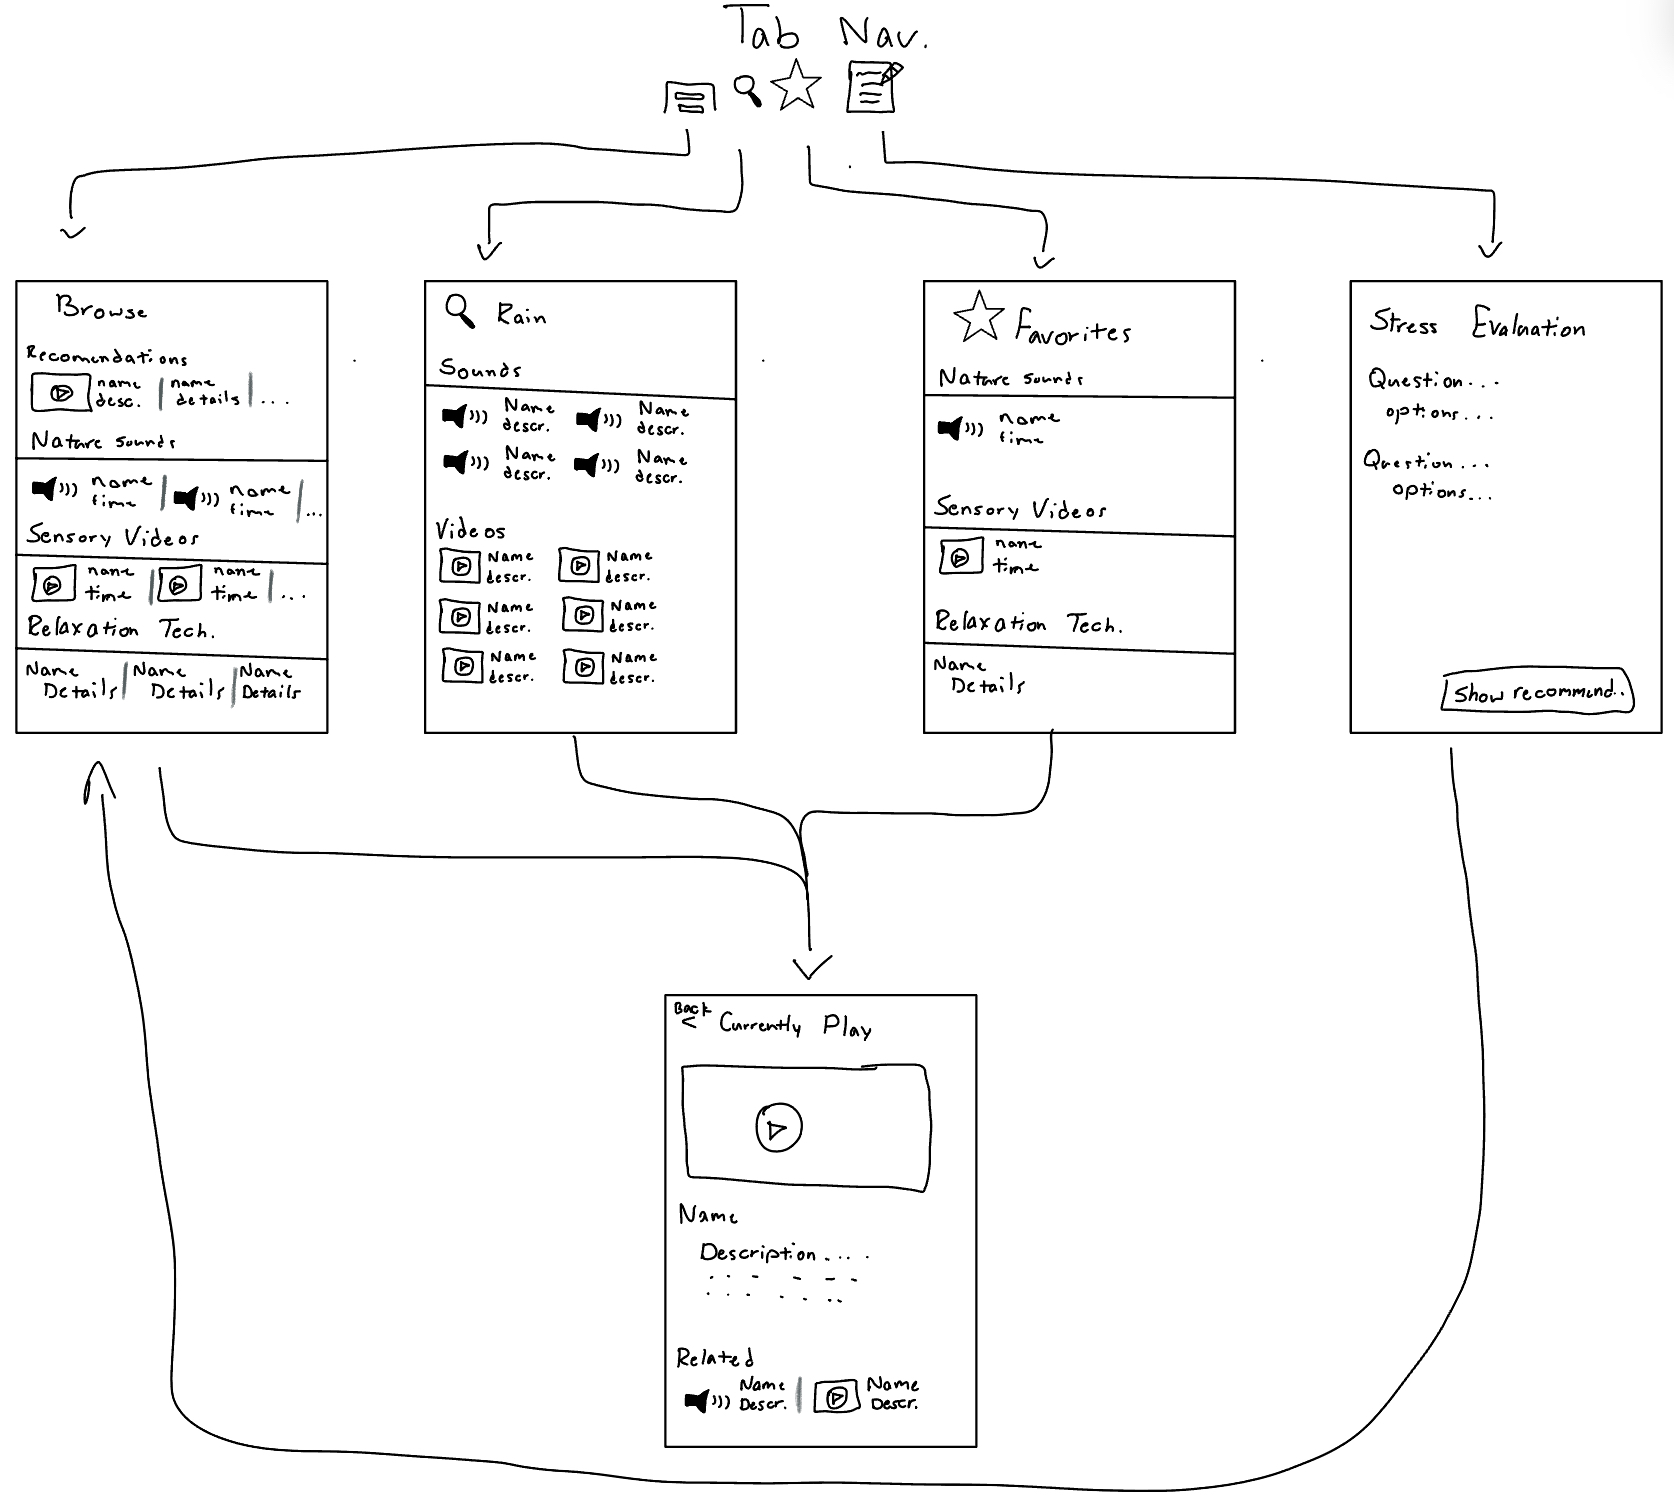 Tab Nav.
Browse
Recomendations
name
desc.
name
details
...
Nature Sounds
name
time
name
time
...
Sensory Videos
name
time
name
time
...
Relaxation Tech.
Name
Details
Name
Details
Name
Details
Rain
Sounds
Name
descr.
Name
descr.
Name
descr.
Name
descr.
Videos
Name
descr.
Name
descr.
Name
descr.
Name
descr.
Name
descr.
Name
descr.
Favorites
Nature Sounds
name
time
Sensory Videos
name
time
Relaxation Tech.
Name
Details
Stress Evaluation
Question...
options...
Question...
options...
Show recommend..
Back
< Currently Play
Name
Description ....
Related
Name
Descr.
Name
Descr.